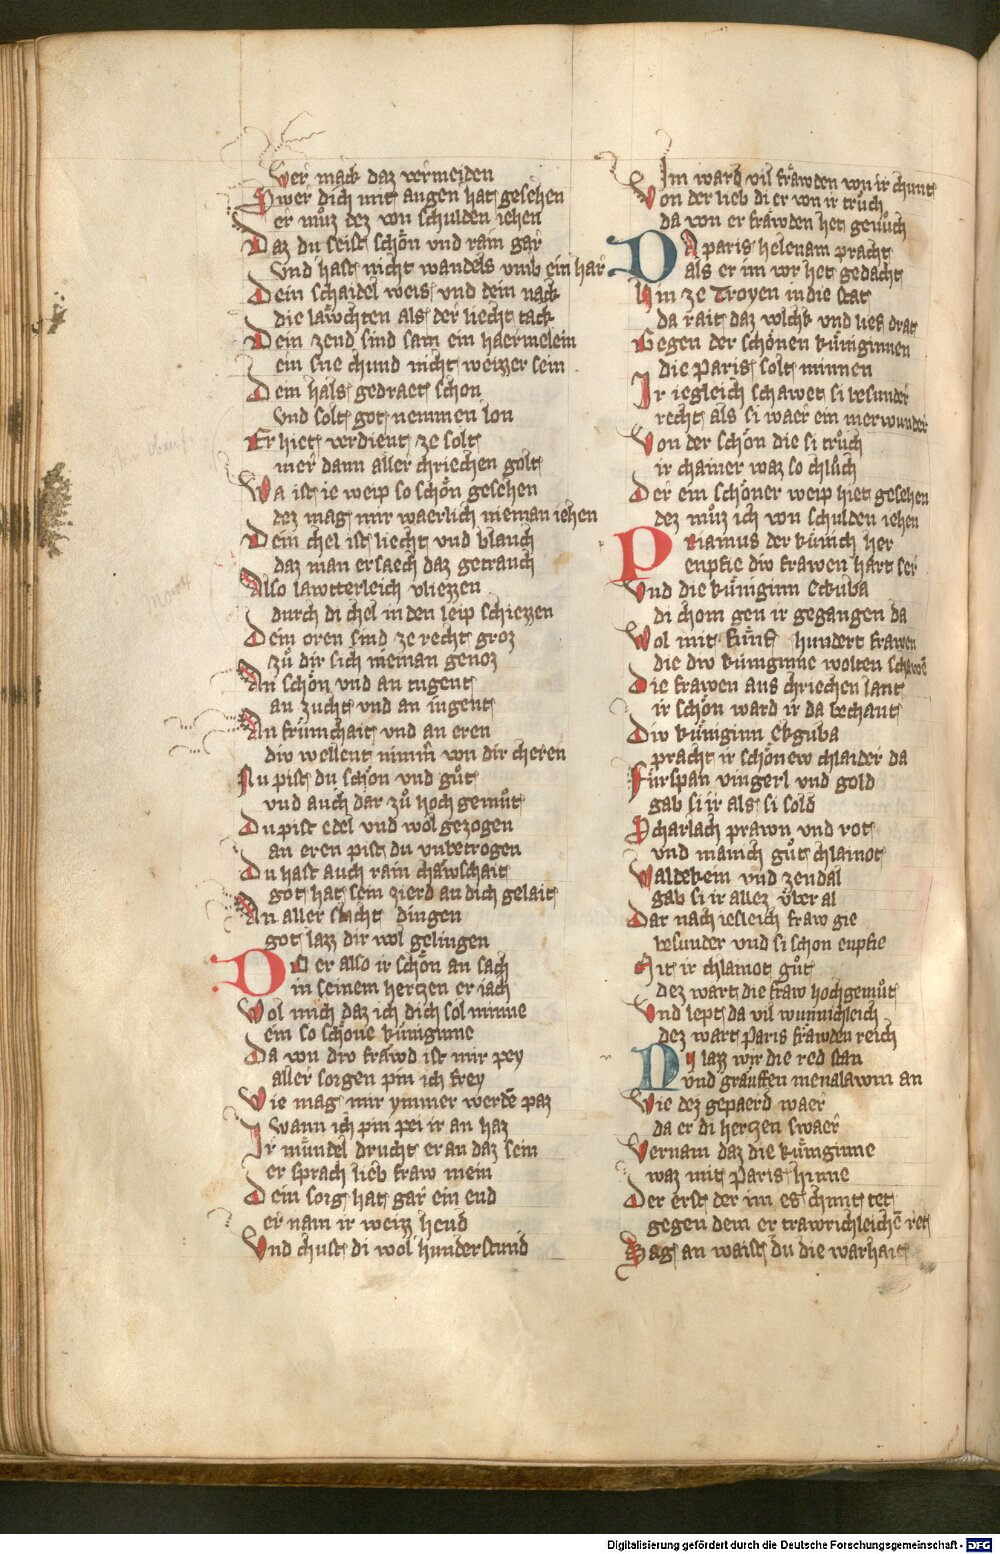 wer mack daz vermeiden
Swer dich mit augen hat gesehen
er můz dez von schulden iehen
Daz du seist schön vnd rain gar
vnd hast nicht wandels vmb ein har
Dein schaidel weis vnd dein nack
die läwchten als der liecht tack
Dein zend sind sam ein haermelein
ein sne chund nicht weizzer sein
Dein hals gedraet schon
vnd solt got nemmen lon
Er hiet verdient ze solt
mer dann aller chriechen golt
Wa ist ie weip so schön gesehen
dez mag mir waerlich nieman iehen
Dein chel ist liecht vnd blanch
daz man ersaech daz getranch
Also lawtterleich vliezzen
durch di chel in den leip schiezzen
Dein oren sind ze recht groz
zů dir sich nieman genoz
An schön vnd an tugent
an zucht vnd an iugent
An frümchait vnd an eren
div wellent nimm̄ von dir cheren
Nu pist du schön vnd gůt
vnd auch dar zů hoch gemůt
Du pist edel vnd wol gezogen
an eren pist du vnbetrogen
Du hast auch rain chäwschait
got hat sein zierd an dich gelait
An aller slacht dingen
got lazz dir wol gelingen
DO er also ir schön an sach
in seinem hertzen er iach
Wol mich daz ich dich sol minne
ein so schöne küniginne
Da von div fräwd ist mir pey
aller sorgen pin ich frey
Wie mag mir ymmer werdē paz
wann ich pin pei ir an haz
Ir mündel drucht er an daz sein
er sprach lieb fraw mein
Dein sorg hat gar ein end
er nam ir weizz hend
Vnd chust di wol hunderstund
Im ward vil fräwden von ir chunt
Von der lieb di er von ir trůch
da von er fräwden het genůch
DA paris helenam pracht
als er im vor het gedacht
Hin ze Troyen in die stat
da rait daz volchk vnd lief drat
Gegen der schönen küniginnen
die Paris solt minnen
Ir iegleich schawet si besunder
recht als si waer ein merwunder
Von der schön die si trůch
ir chainer waz so chlůch
Der ein schöner weip hiet gesehen
dez můz ich von schulden iehen
Priamus der künich her
enpfie div frawen hart ser
Vnd die küniginn Eckuba
di chom gen ir gegangen da
Wol mit fünf hundert frawen
die div küniginne wolten schawē
Die frawen aus chriechen lant
ir schön ward ir da bechant
Div küniginn Ekguba
pracht ir schönew chlaider da
Fürspan vingerl vnd gold
gab si ir als si sold
Scharlach prawn vnd rot
vnd manich gůt chlainot
Waldekein vnd zendal
gab si ir allez über al
Dar nach iesleich fraw gie
besunder vnd si schon enpfie
Mit ir chlainot gůt
dez wart die fraw hochgemůt
Vnd lept da vil wunnichleich
dez wart Paris fräwden reich
NV lazz wir die red stan
vnd gräuffen menalawm an
Wie dez gepaerd waer
da er di hertzen swaer
Vernam daz die küniginne
waz mit Paris hinne
Der erst der im es chunt tet
gegen dem er trawrichleichē ret
Sag an waist du die warhait
Digitalisierung gefördert durch die Deutsche Forschungsgemeinschaft - DFG